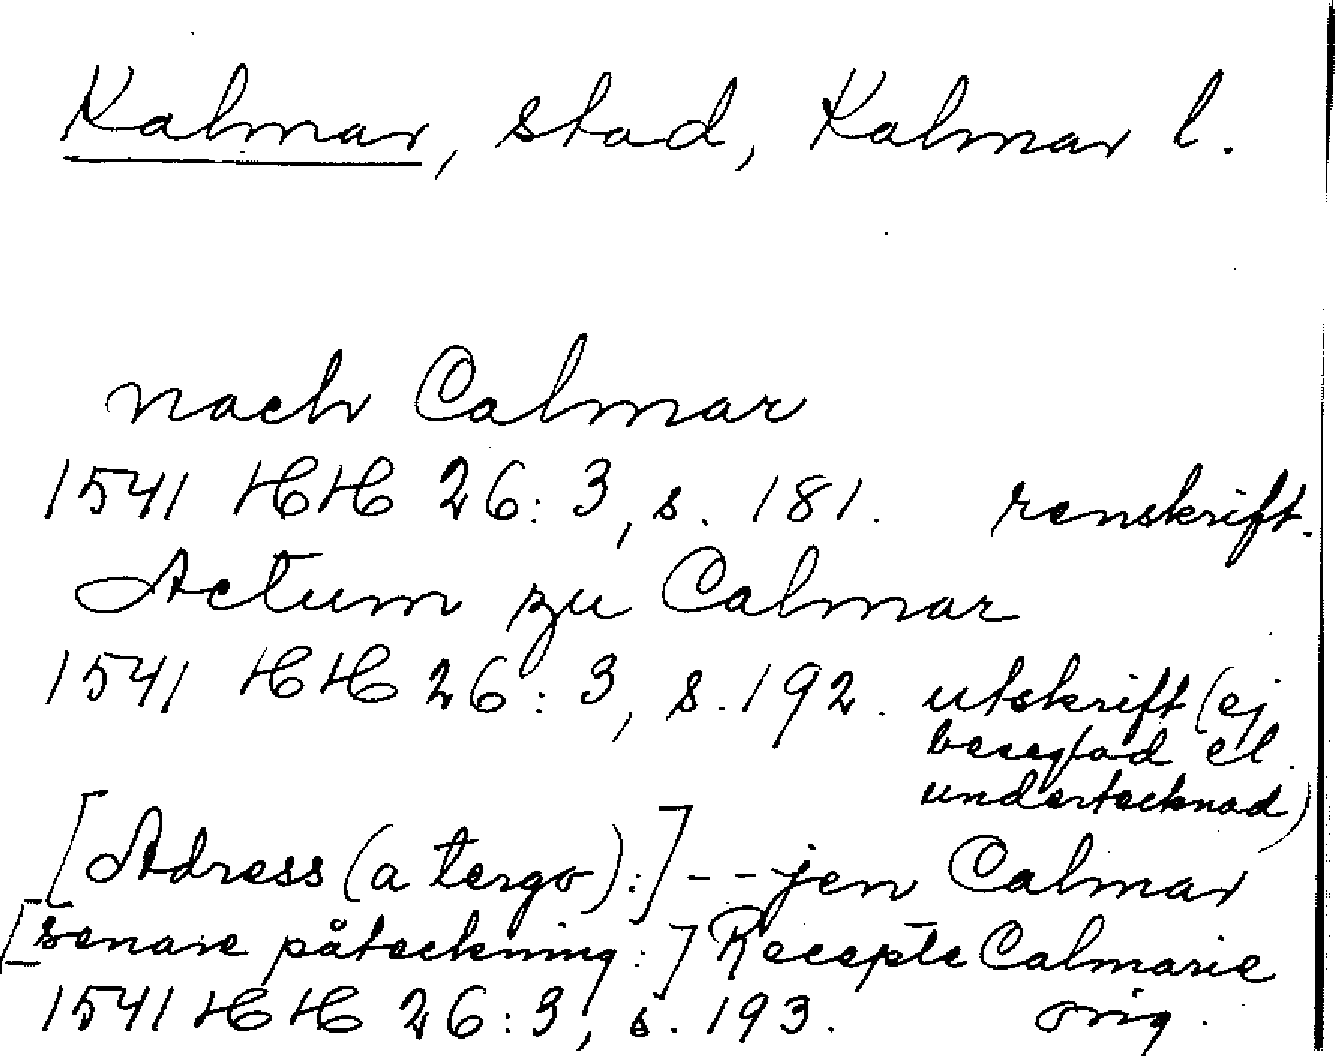 Kalmar, stad, Kalmar l.
nach Calmar
1541 HH 26:3, s. 181. renskrift.
Actum zu Calmar
1541 HH 26:3, s. 192. utskrift (ej
beseglad el.
undertecknad)
[Adress (a tergo):] - - jen Calmar
[senare påteckning:] Recepte Calmarie
1541 HH 26:3, s. 193. orig.